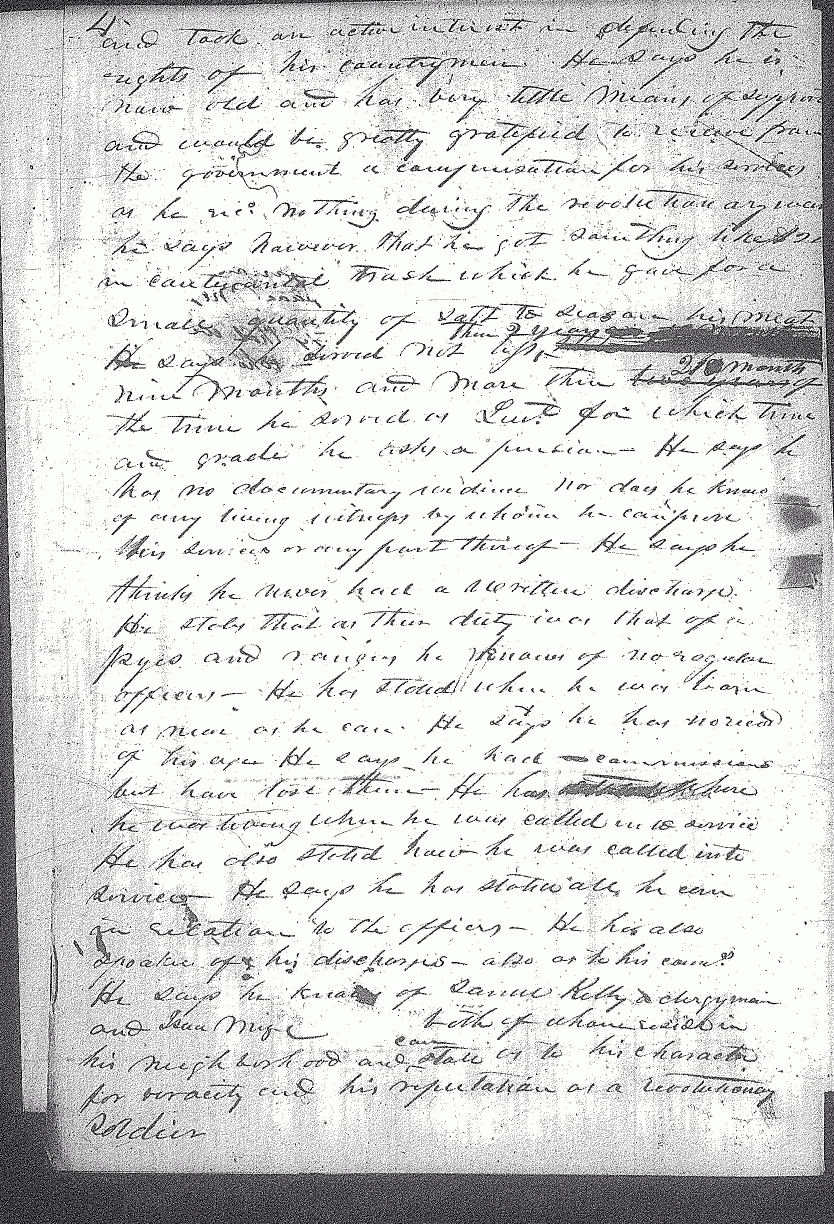 4
and took an active interest in defending the
rights of his countrymen. He says he is
now old and has very little means of support
and would be greatly gratified to receive from
the government a compensation for his services
as he recd. nothing during the revolutionary war
he says however that he got something like
in continental trash which he gave for a
small quantity of salt to season his meat
He says he served not less than 2 years
nine months and more than 20 month
the time he served as Lieut. for which time
and grade he asks a pension - He says he
has no documentary evidence nor does he know
of any living witness by whom he can prove
his services or any part thereof - He says he
thinks he never had a written discharge.
He states that as their duty was that of
spyes and rangers he knows of no regular
officers - He has stated when he was born
as near as he can. He says he has no record
of his age He says he had commissions
but have lost them - He has where
he was living when he was called into service
He has also stated how he was called into
service - He says he has stated all he can
in relation to the officers - He has also
spoken of his discharges - also as to his com?
He says he knows of Samuel Kelly a clergyman
and Isaac both of whom reside in
his neighborhood and can state as to his character
for veracity and his reputation as a revolutionary
soldier